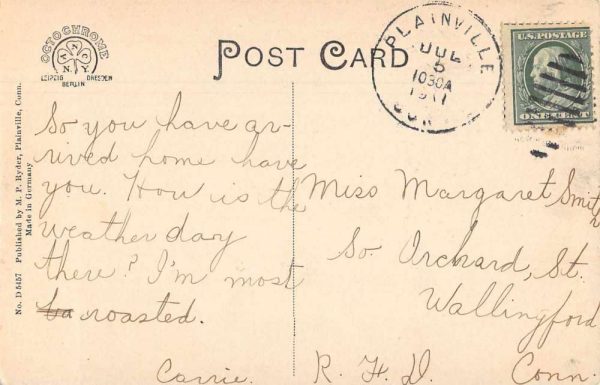 OCTOCHROME
A N C
N.Y.
LEIPZIG DRESDEN
BERLIN
POST CARD
PLAINVILLE
JUL
5
1030A
1911
CONN.
U.S. POSTAGE
ONE CENT
No. D 5457 Published by M. P. Ryder, Plainville, Conn.
Made in Germany
So you have ar-
rived home have
you. How is the
weather day
there? I'm most
roasted.
Carrie.
Miss Margaret Smith
So. Orchard, St.
Wallingford
R. F. D. Conn.